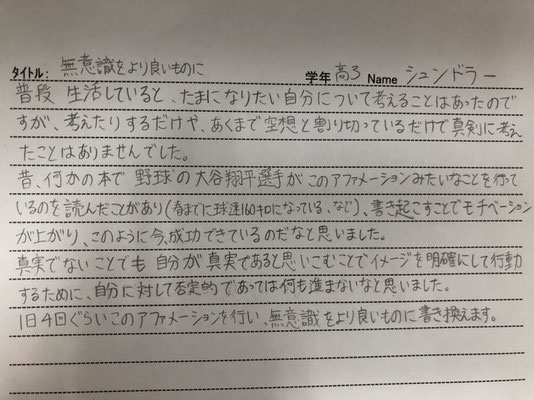 タイトル: 無意識をより良いものに 学年 高3 Name シュンドラー
普段 生活していると、たまになりたい自分について考えることはあったので
すが、考えたりするだけや、あくまで空想と割り切っているだけで真剣に考え
たことはありませんでした。
昔、何かの本で 野球の大谷翔平選手がこのアファメーションみたいなことを行って
いるのを読んだことがあり(春までに球速160キロになっている、など)、書き起こすことでモチベーション
が上がり、このように今、成功できているのだなと思いました。
真実でないことでも 自分が真実であると思いこむことでイメージを明確にして行動
するために、自分に対して否定的であっては何も進まないなと思いました。
1日4回ぐらいこのアファメーションを行い、無意識をより良いものに書き換えます。